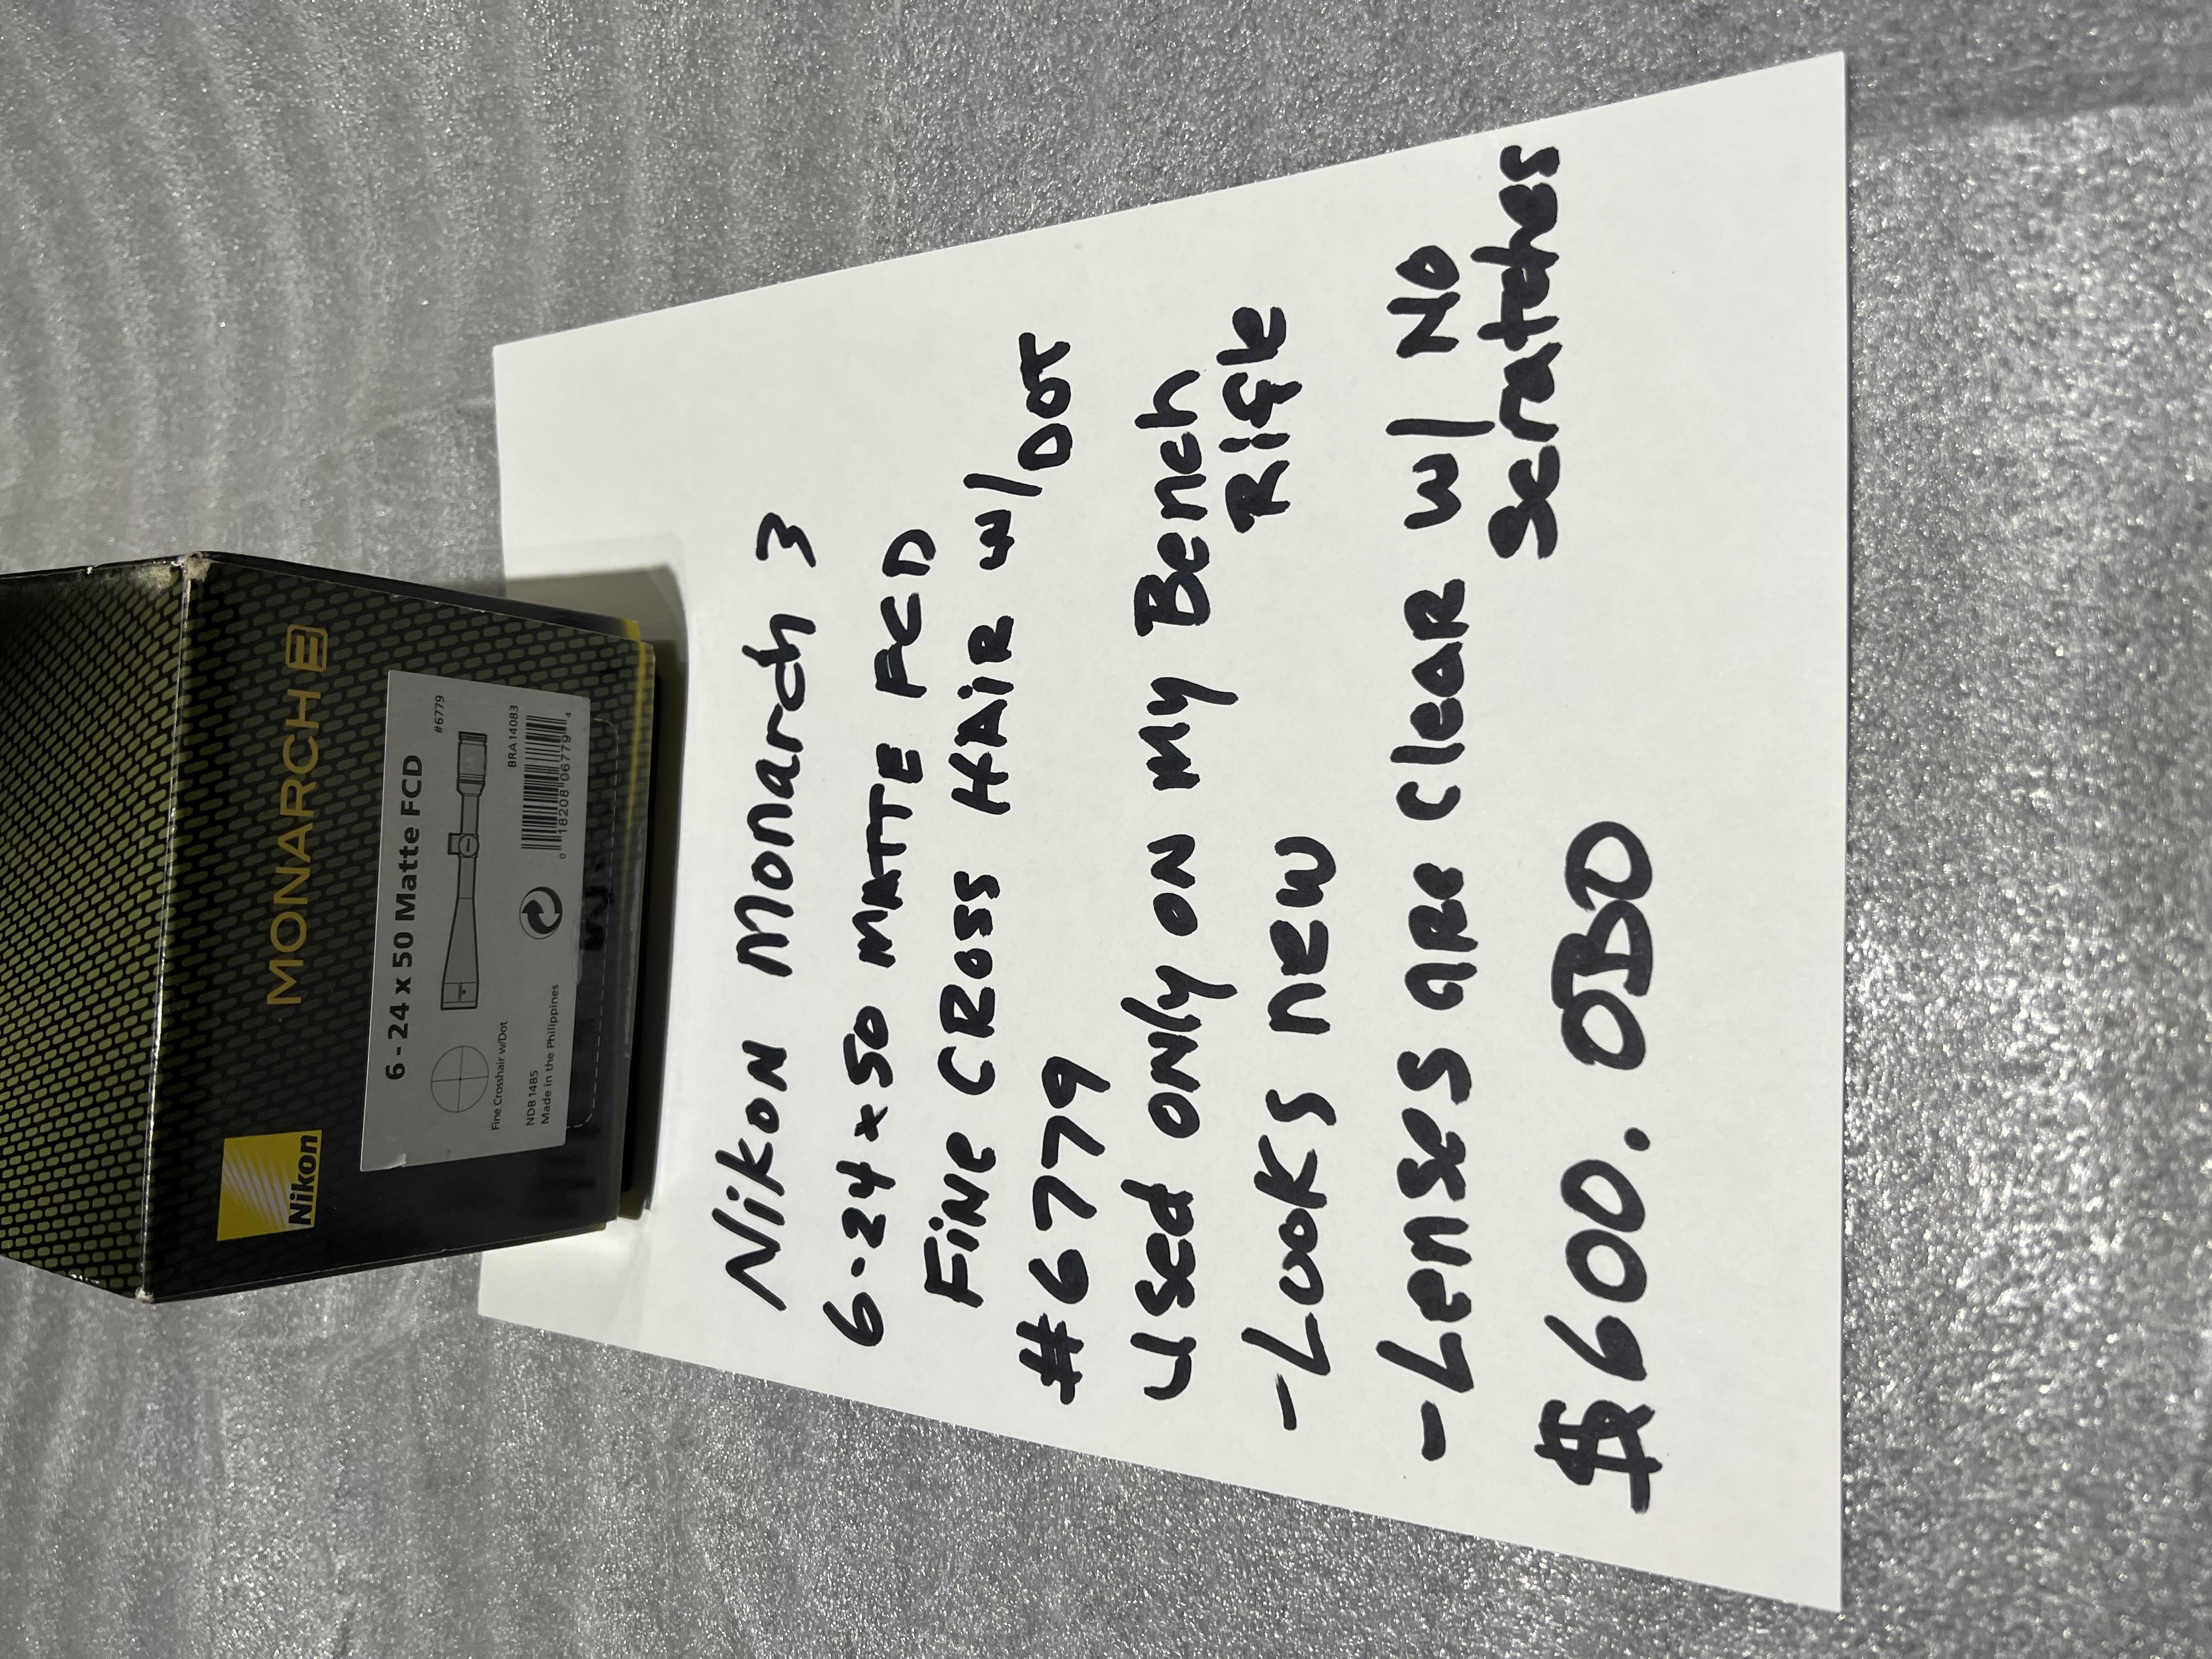 Nikon
MONARCH 3
6 - 24 x 50 Matte FCD
#6779
Fine Crosshair w/Dot
NDB 1485
Made in the Philippines
BRA14083
0 18208 06779 4
Nikon Monarch 3
6-24 x 50 MATTE FCD
Fine CRoss HAiR w/ Dot
#6779
Used ONly ON My Bench
Rifle
-Looks new
-Lenses are cleaR w/ No
Scratches
$600. OBO